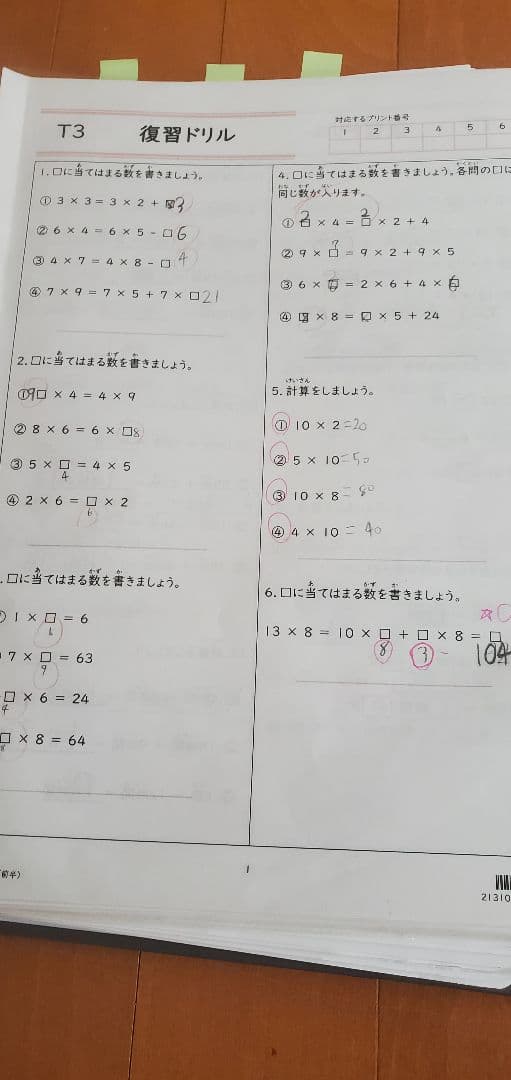 T3 復習ドリル
対応するプリント番号
1 2 3 4 5 6
1. □に当てはまる数を書きましょう。
① 3 × 3 = 3 × 2 + □3
② 6 × 4 = 6 × 5 - □ 6
③ 4 × 7 = 4 × 8 - □ 4
④ 7 × 9 = 7 × 5 + 7 × □ 21
2. □に当てはまる数を書きましょう。
① 9□ × 4 = 4 × 9
② 8 × 6 = 6 × □8
③ 5 × □ = 4 × 5
4
④ 2 × 6 = □ × 2
6
. □に当てはまる数を書きましょう。
1 × □ = 6
6
7 × □ = 63
9
□ × 6 = 24
4
□ × 8 = 64
8
4. □に当てはまる数を書きましょう。各問の□に
同じ数が入ります。
① □ × 4 = □ × 2 + 4
2 2
② 9 × □ = 9 × 2 + 9 × 5
③ 6 × □ = 2 × 6 + 4 × □
④ □ × 8 = □ × 5 + 24
5. 計算をしましょう。
① 10 × 2 = 20
② 5 × 10 = 50
③ 10 × 8 = 80
④ 4 × 10 = 40
6. □に当てはまる数を書きましょう。
13 × 8 = 10 × □ + □ × 8 = □
8 3 104
前半)
1
21310